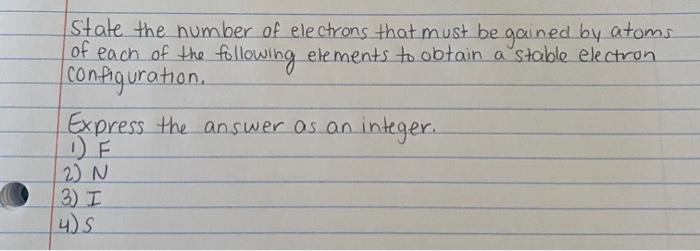 State the number of electrons that must be gained by atoms
of each of the following elements to obtain a stable electron
configuration.
Express the answer as an integer.
1) F
2) N
3) I
4) S